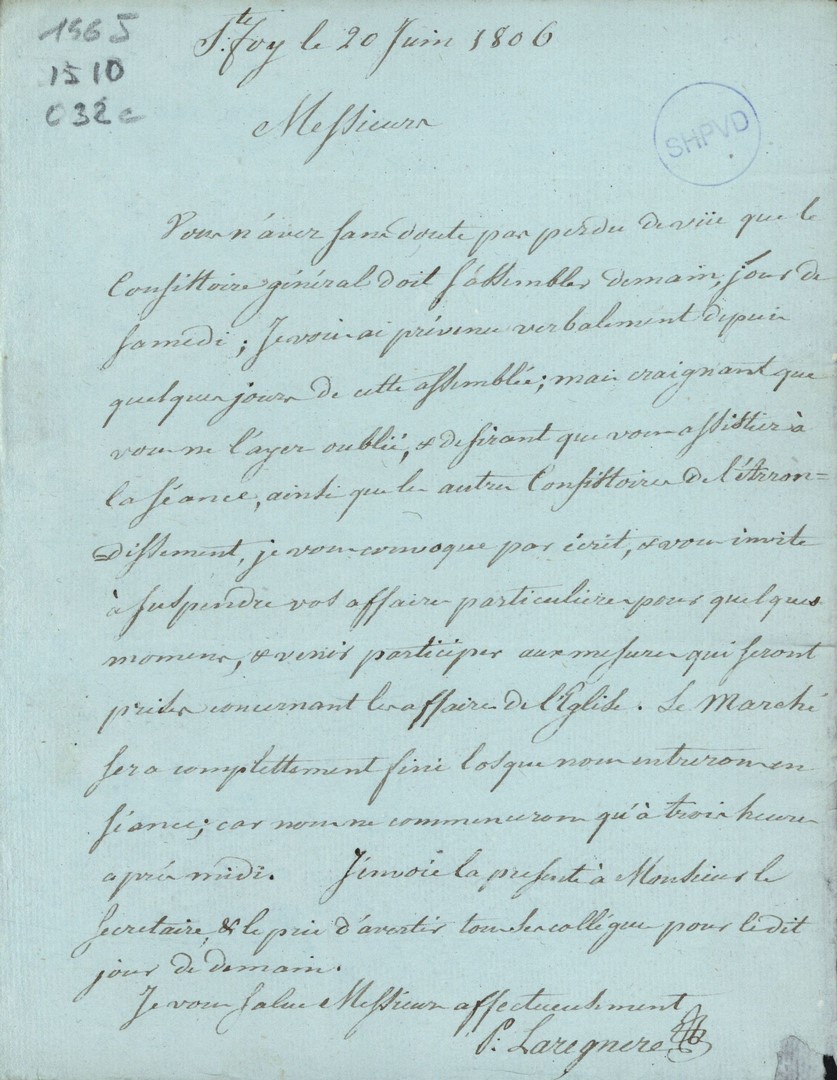 1965
1510
032c
SHPVD
Ste foy le 20 Juin 1806
Messieurs
Vous n'avez sans doute pas perdu de vüe que le
Consistoire général doit s'assembler demain, jour de
samedi; Je vous ai prévenu verbalement depuis
quelques jours de cette assemblée; mais craignant que
vous ne l'ayez oublié, & desirant que vous assistiez à
la séance, ainsi que les autres Consistoires de l'Arron=
dissement, je vous convoque par écrit, & vous invite
à suspendre vos affaires particulieres pour quelques
momens, & venir participer aux mesures qui seront
prises concernant les affaires de l'Eglise. Le Marché
sera complettement fini losque nous entrerons en
séance; car nous ne commencerons qu'à trois heures
après midi. J'envoie la presente à Monsieur le
Secretaire, & le prie d'avertir tous ses collégues pour le dit
jour de demain.
Je vous salue Messieurs affectueusement
P. Laregnere